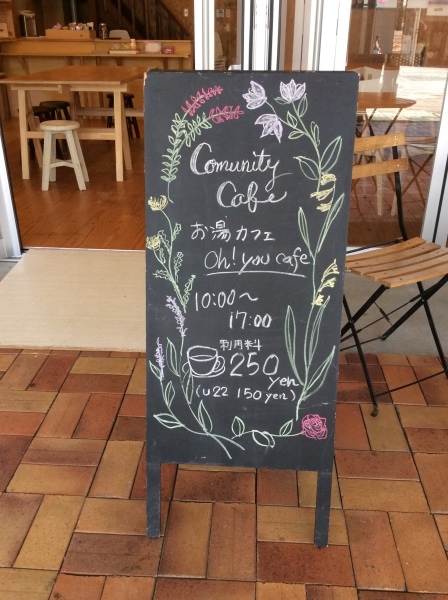 Comunity
Cafe
お湯カフェ
Oh! you cafe
10:00〜
17:00
利用料
250 yen
(u22 150 yen)